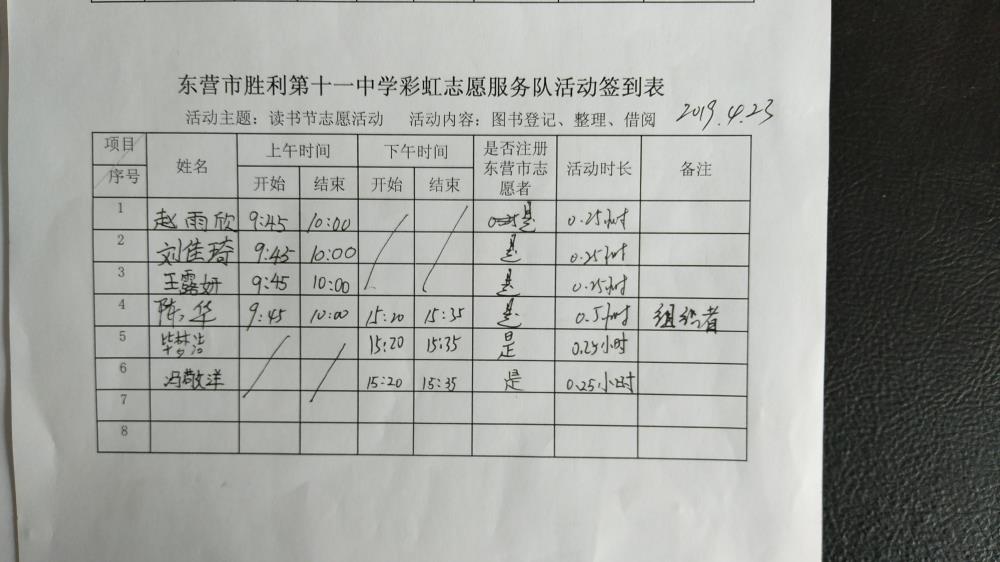 东营市胜利第十一中学彩虹志愿服务队活动签到表
活动主题：读书节志愿活动 活动内容：图书登记、整理、借阅 2019.4.23
项目 序号 姓名 上午时间 下午时间 是否注册东营市志愿者 活动时长 备注
开始 结束 开始 结束
1 赵雨欣 9:45 10:00 是 0.25小时
2 刘佳琦 9:45 10:00 是 0.25小时
3 王露妍 9:45 10:00 是 0.25小时
4 陈华 9:45 10:00 15:20 15:35 是 0.5小时 组织者
5 毕梦洁 15:20 15:35 是 0.25小时
6 冯敬洋 15:20 15:35 是 0.25小时
7
8